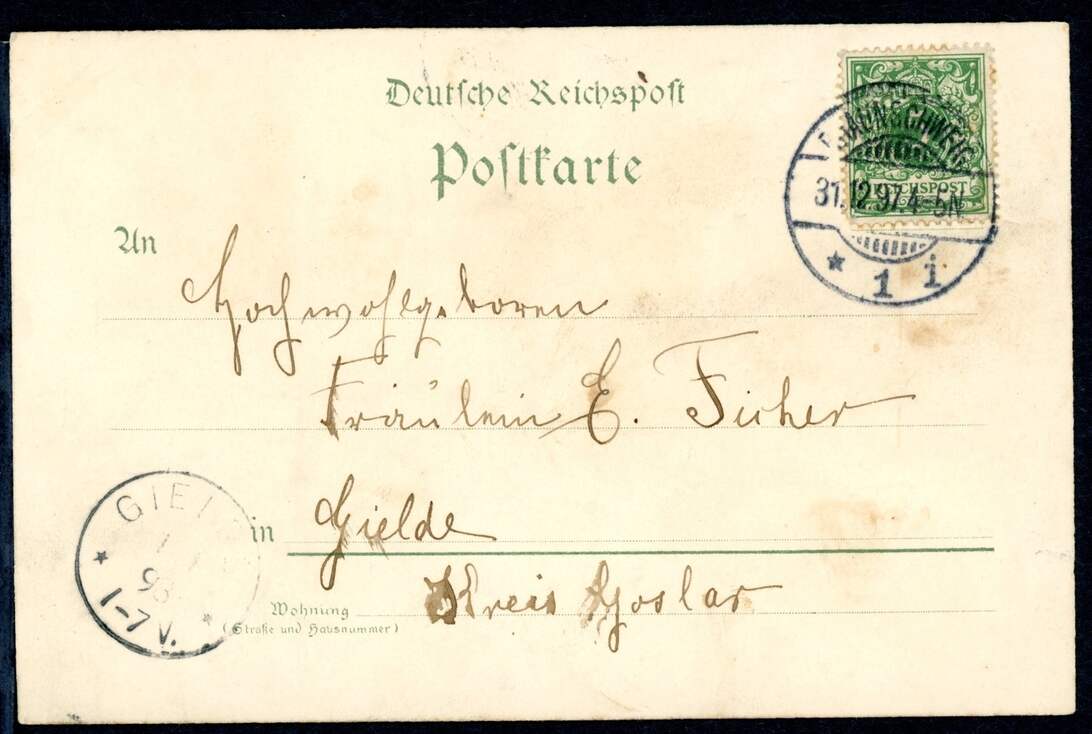 Deutsche Reichspost
Postkarte
BRAUNSCHWEIG
31.12.97.4-5N
* 1 i
REICHSPOST
An
Hochwohlgeboren
Fräulein E. Ficher
in Gielde
Kreis Goslar
Wohnung
(Straße und Hausnummer)
GIEL
1
98
1-7 V.